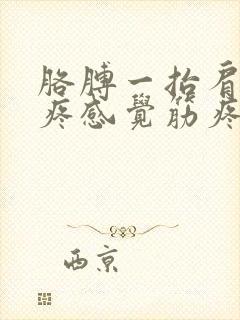 胳膊一抬肩
疼感覺筋疼
西京